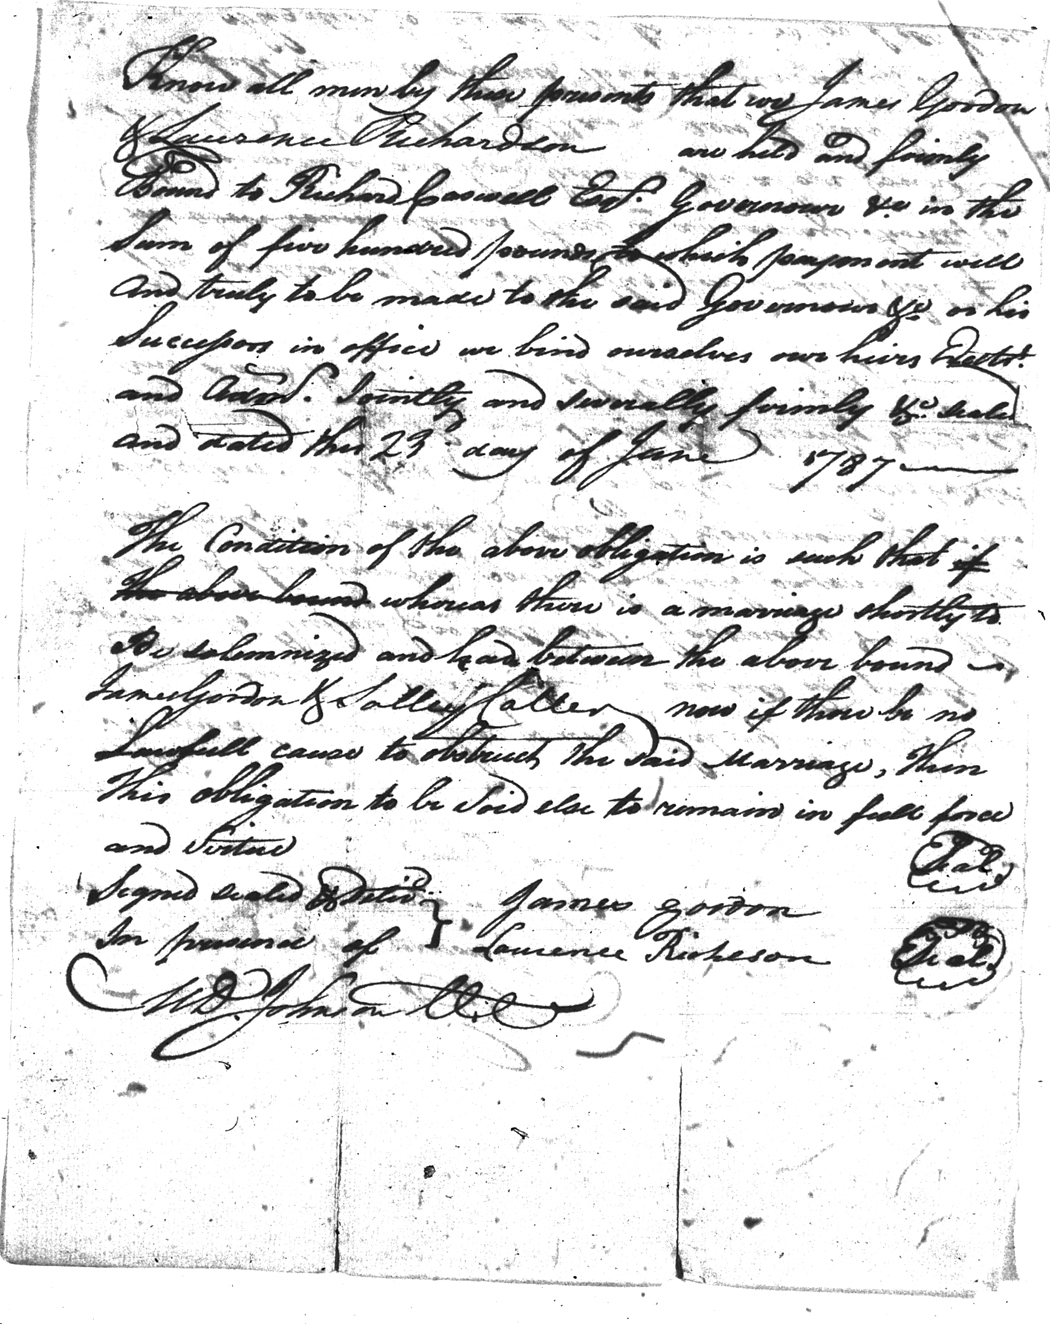 Know all men by these presents that we James Gordon
& Laurence Richardson are held and firmly
Bound to Richard Caswell Esqr. Governour &c in the
Sum of five hundred pounds to which payment well
And truly to be made to the said Governour &c or his
Successors in office we bind ourselves our heirs Exectrs.
and Admrs. Jointly and severally firmly &c. sealed
and dated this 23d day of June 1787
The Condition of the above obligation is such that if
the above bound whereas there is a marriage shortly to
Be solemnized and had between the above bound
James Gordon & Salley now if there be no
Lawfull cause to obstruct the said Marriage, then
this obligation to be void else to remain in full force
and Virtue
Signed sealed & delivd
James Gordon
Seal
In presence of
Laurence Richeson
Seal
WD. Johnson